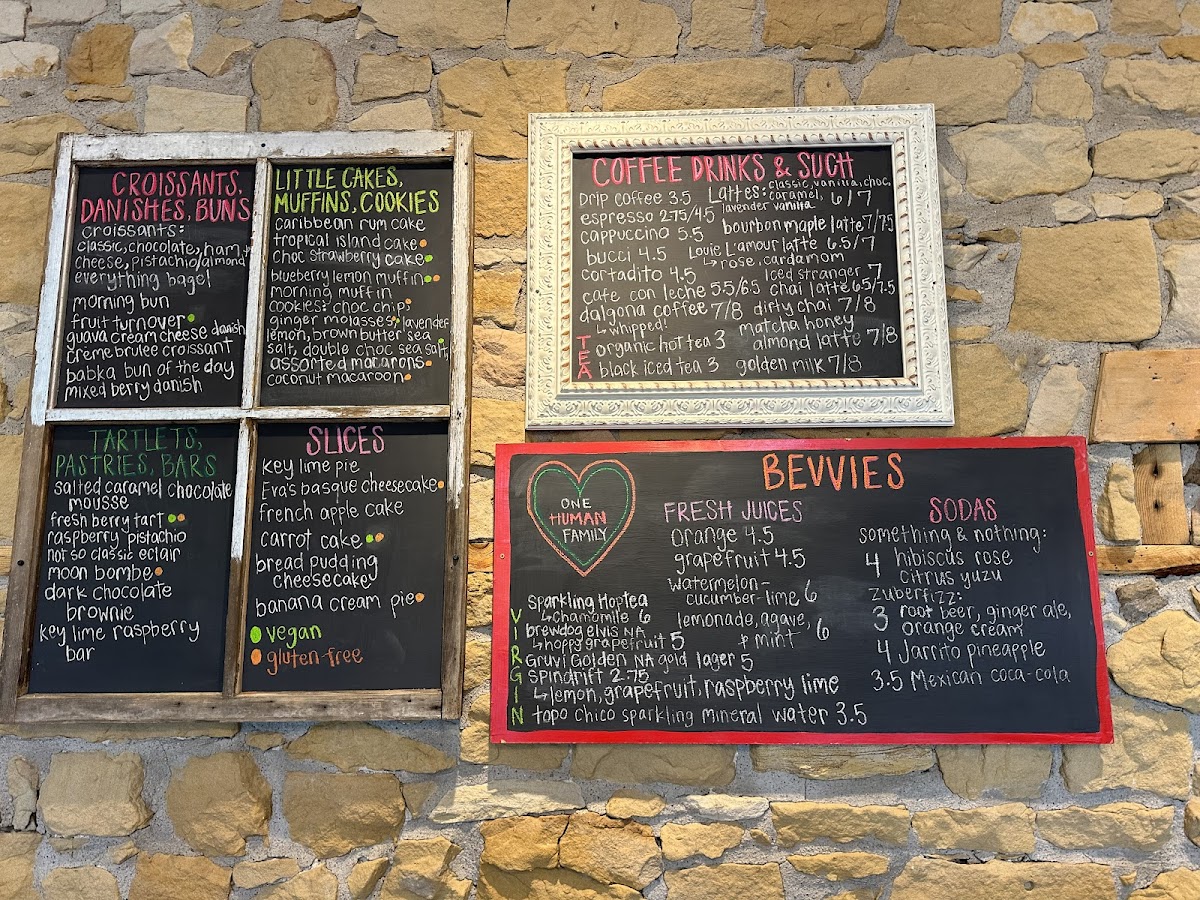 CROISSANTS,
DANISHES, BUNS
croissants:
classic, chocolate, ham +
cheese, pistachio/almond
everything bagel
morning bun
fruit turnover
guava cream cheese danish
creme brulee croissant
babka bun of the day
mixed berry danish
LITTLE CAKES,
MUFFINS, COOKIES
caribbean rum cake
tropical island cake
choc strawberry cake
blueberry lemon muffin
morning muffin
cookies: choc chip
ginger molasses, lavender
lemon, brown butter sea
salt, double choc sea salt
assorted macarons
coconut macaroon
TARTLETS,
PASTRIES, BARS
salted caramel chocolate
mousse
fresh berry tart
raspberry pistachio
not so classic eclair
moon bombe
dark chocolate
brownie
key lime raspberry
bar
SLICES
key lime pie
Eva's basque cheesecake
french apple cake
carrot cake
bread pudding
cheesecake
banana cream pie
vegan
gluten-free
COFFEE DRINKS & SUCH
Drip coffee 3.5
espresso 2.75/4.5
cappuccino 5.5
bucci 4.5
cortadito 4.5
cafe con leche 5.5/6.5
dalgona coffee 7/8
↳ whipped!
TEA
organic hot tea 3
black iced tea 3
Lattes: classic, vanilla, choc,
caramel, 6/7
lavender vanilla
bourbon maple latte 7/7.5
Louie L'amour latte 6.5/7
↳ rose, cardamom
iced stranger 7
chai latte 6.5/7.5
dirty chai 7/8
matcha honey
almond latte 7/8
golden milk 7/8
BEVVIES
ONE
HUMAN
FAMILY
FRESH JUICES
orange 4.5
grapefruit 4.5
watermelon-
cucumber-lime 6
lemonade, agave,
& mint 6
SODAS
something & nothing:
4 hibiscus rose
citrus yuzu
zuberfizz:
3 root beer, ginger ale,
orange cream
4 Jarrito pineapple
3.5 Mexican coca-cola
VIRGIN
sparkling Hoptea
↳ chamomile 6
brewdog elvis NA
↳ hoppy grapefruit 5
Gruvi Golden NA gold lager 5
spindrift 2.75
↳ lemon, grapefruit, raspberry lime
topo chico sparkling mineral water 3.5